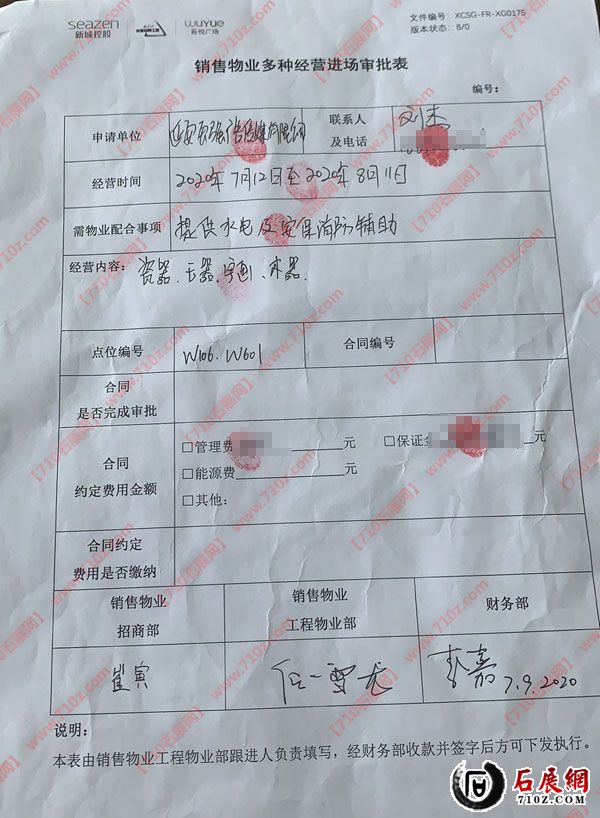 seazen
新城控股
WUYUE
吾悦广场
文件编号：XCSG-FR-XG0175
版本状态：B/0
销售物业多种经营进场审批表
编号：
申请单位
联系人
及电话
刘杰
经营时间 2020年7月12日至2020年8月11日
需物业配合事项 提供水电及安保消防辅助
经营内容：瓷器、玉器、字画、木器
点位编号 W106、W601 合同编号
合同
是否完成审批
合同
约定费用金额
□管理费 元 □保证金 元
□能源费 元
□其他：
合同约定
费用是否缴纳
销售物业
招商部
销售物业
工程物业部
财务部
崔寅
李嘉 7.9.2020
说明：
本表由销售物业工程物业部跟进人负责填写，经财务部收款并签字后方可下发执行。
【710石展网】www.710z.com
石展網
710Z.COM